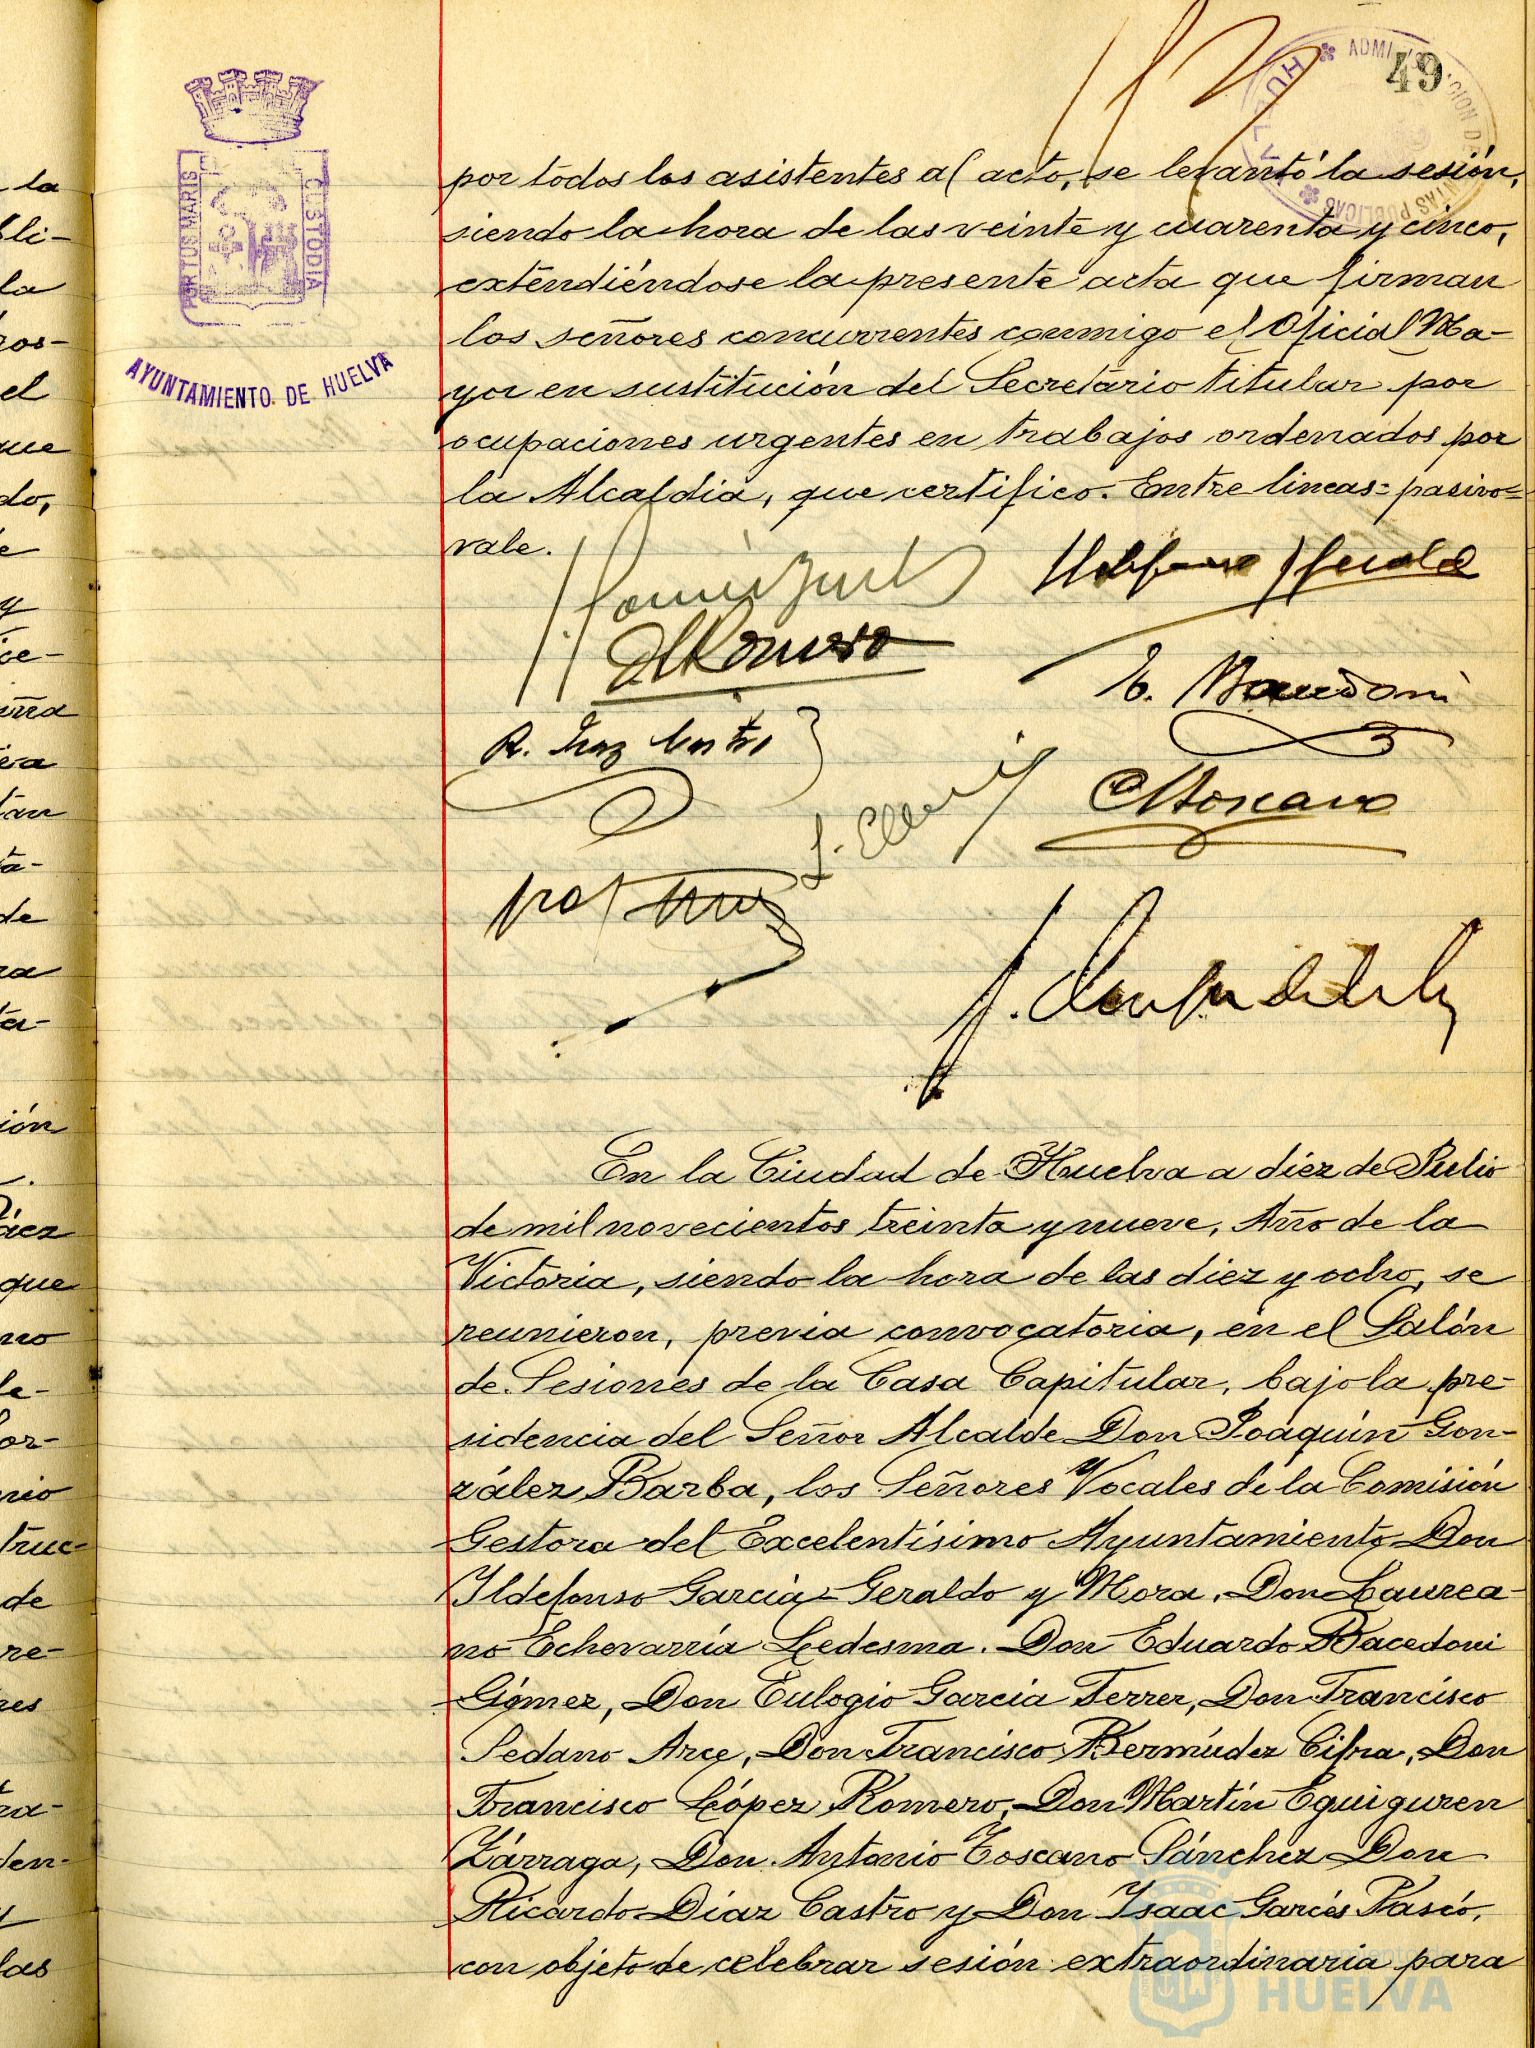 49
ADMINISTRACION DE RENTAS PUBLICAS
HUELVA
PORTUS MARIS
CUSTODIA
AYUNTAMIENTO DE HUELVA
por todos los asistentes al acto, se levantó la sesión,
siendo la hora de las veinte y cuarenta y cinco,
extendiéndose la presente acta que firman
los señores concurrentes conmigo el Oficial Ma-
yor en sustitución del Secretario titular por
ocupaciones urgentes en trabajos ordenados por
la Alcaldia, que certifico. Entre lineas= pasivo=
vale.
Romero
R. Diaz Castro
E. Bacedoni
A Toscano
En la Ciudad de Huelva a diez de Julio
de mil novecientos treinta y nueve, Año de la
Victoria, siendo la hora de las diez y ocho, se
reunieron, previa convocatoria, en el Salón
de Sesiones de la Casa Capitular, bajo la pre-
sidencia del Señor Alcalde Don Joaquín Gon-
zález Barba, los Señores Vocales de la Comisión
Gestora del Excelentísimo Ayuntamiento Don
Ildefonso García-Geraldo y Mora, Don Laurea-
no Echevarría Ledesma. Don Eduardo Bacedoni
Gómez, Don Eulogio Garcia Ferrer, Don Francisco
Sedano Arce, Don Francisco Bermúdez Cifra, Don
Francisco López Romero, Don Martín Eguiguren
Zárraga, Don Antonio Toscano Sánchez Don
Ricardo Díaz Castro y Don Isaac Garcés Pascó,
con objeto de celebrar sesión extraordinaria para
HUELVA
la
bli-
la
ros-
el
que
do,
y
de
ión
que
or-
truc-
de
re-
res
las